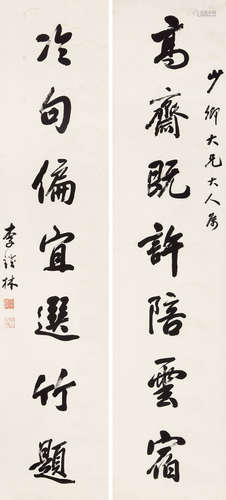 少卿大兄大人属
高齋既許陪雲宿
冷句偏宜選竹題
李
林